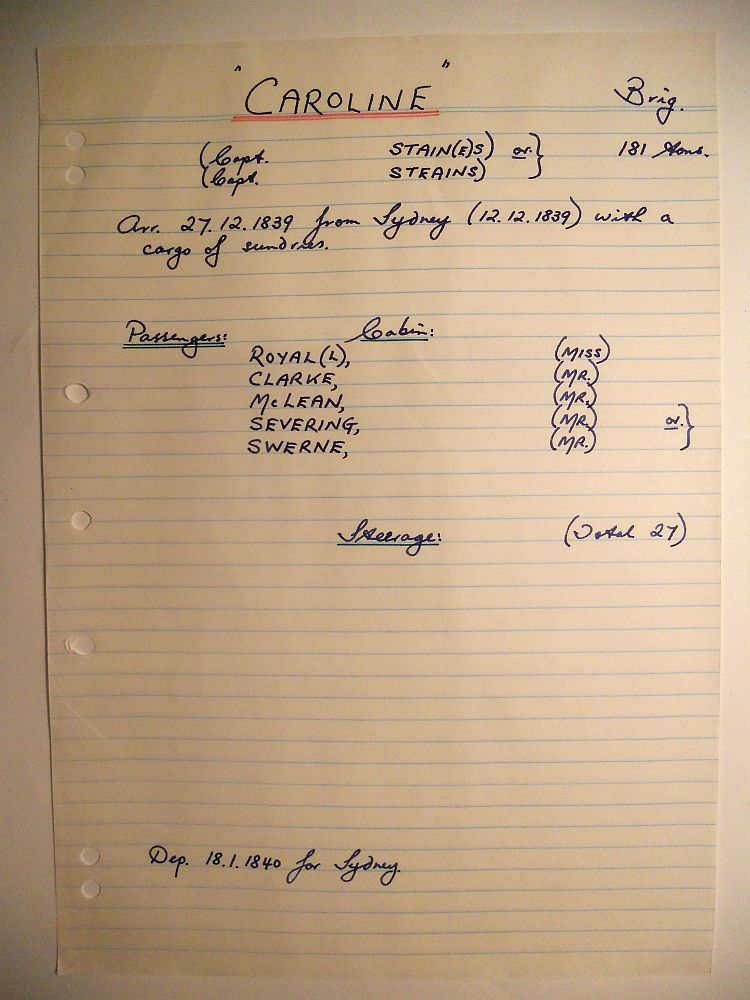 "CAROLINE" Brig.
(Capt. STAIN(E)S) or } 181 tons.
(Capt. STEAINS)
Arr. 27.12.1839 from Sydney (12.12.1839) with a
cargo of sundries.
Passengers: Cabin:
ROYAL(L), (MISS)
CLARKE, (MR.)
McLEAN, (MR.)
SEVERING, (MR.) or }
SWERNE, (MR.)
Steerage: (Total 27)
Dep. 18.1.1840 for Sydney.